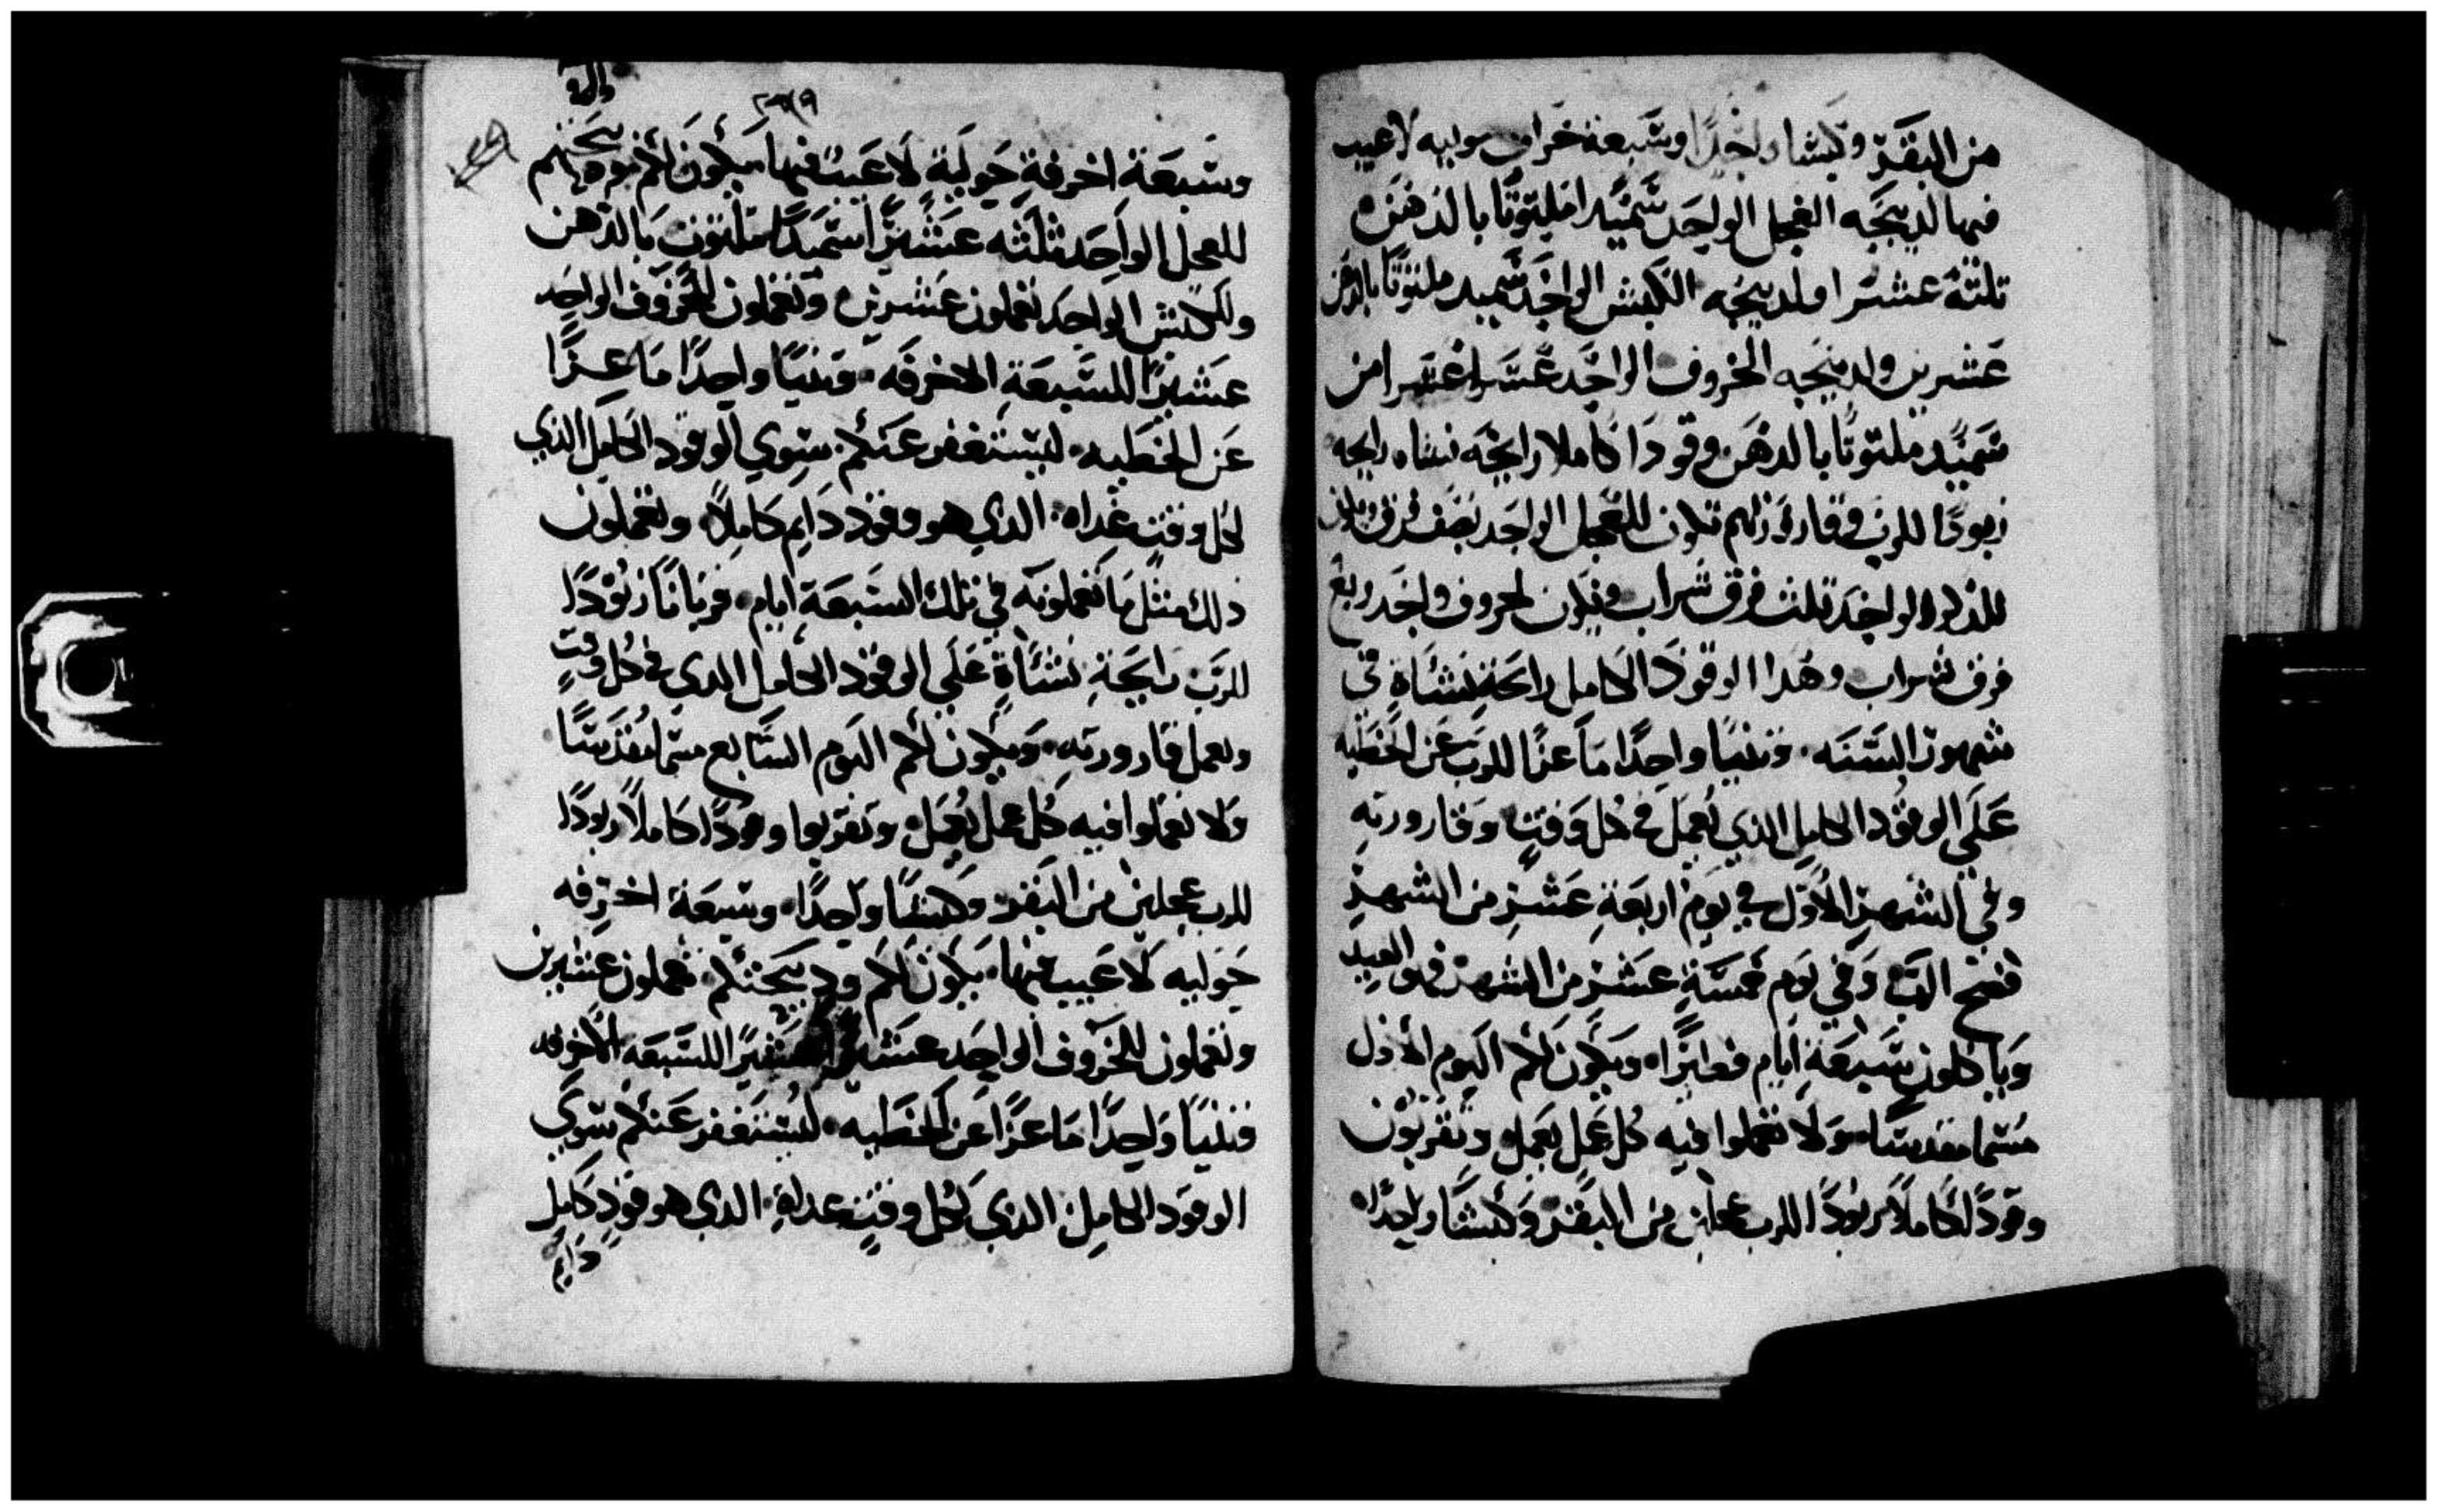 من البقر وكبشا واحدًا وسبعة خراف حوليه لا عيب
فيها لديبحه العجل الواحد سميدا ملتوتًا بالدهن
تلتة عشر ا ولديبحه الكبش الواحد سميد ملتوتًا بالدهن
عشرين ولديبحه الخروف الواحد عشر اعشر ا من
سميد ملتوتًا بالدهن وقودًا كاملا رايحه نشاه رايحه
زبودًا للرب وقارورتهم تكون للعجل الواحد نصف فرق
الواحد تلت فرق شراب ويكون لخروف واحد ربع
فرق شراب وهدا الوقود الكامل رايحة نشاة في
شهور السنه وتنيًا واحدًا ماعزًا للرب عن الخطيه
علي الوقود الكامل الذي يعمل في كل وقت وقارورته
وفي الشهر الأول في يوم اربعة عشر من الشهر
فصح الرب وفي يوم خمسة عشر من الشهر فهو العيد
وياكلون سبعة ايام فطيرًا ويكون لكم اليوم الأول
مسما مقدسًا ولا تعملوا فيه كل عمل يعمل وتقربون
وقودًا كاملاً زبودًا للرب عجلين من البقر وكبشًا واحدًا
وسبعة اخرفة حولية لا عيب فيها يكون لكم
للعجل الواحد ثلثه عشر سميدًا ملتوت بالدهن
وللكبش الواحد تعملون عشرين وتعملون للخروف الواحد
عشيرًا للسبعة الاخرفه وتنيًا واحدًا ماعزًا
عن الخطيه ليستغفر عنكم سوي الوقود الكامل الذي
لكل وقت غداه الدي هو وقود دايم كاملاً وتعملون
ذلك مثل ما تعملونه في تلك السبعة ايام قربانًا زبودًا
للرب رايحة نشاة علي الوقود الكامل الدي في كل وقت
ويعمل قارورته ويكون لكم اليوم السابع مسما مقدسًا
ولا تعملوا فيه كل عمل يعمل وتقربوا وقودًا كاملاً زبودًا
للرب عجلين من البقر وكبشًا واحدًا وسبعة اخرفه
حوليه لا عيب فيها يكون لكم ودبيحتكم تعملون عشرين
وتعملون للخروف الواحد عشيرًا عشيرًا للسبعه الاخرفه
وتنيًا واحدًا ماعزًا عن الخطيه ليستغفر عنكم سوي
الوقود الكامل الدي لكل وقت غداة الدي هو وقود كامل
دايم